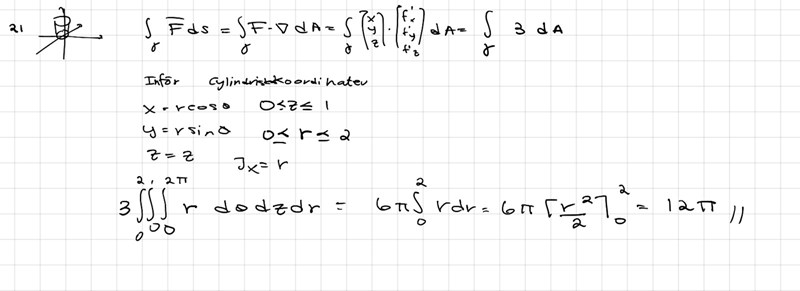 21 ∫_γ F̅ ds = ∫_γ F · ∇ dA = ∫_γ (x y z) · (f'x f'y f'z) dA = ∫_γ 3 dA
Inför Cylindriskkoordinater
x = r cos θ 0 ≤ z ≤ 1
y = r sin θ 0 ≤ r ≤ 2
z = z Jx = r
3 ∫_0^2 ∫_0^1 ∫_0^{2π} r dθ dz dr = 6π ∫_0^2 r dr = 6π [r²/2]_0^2 = 12π //